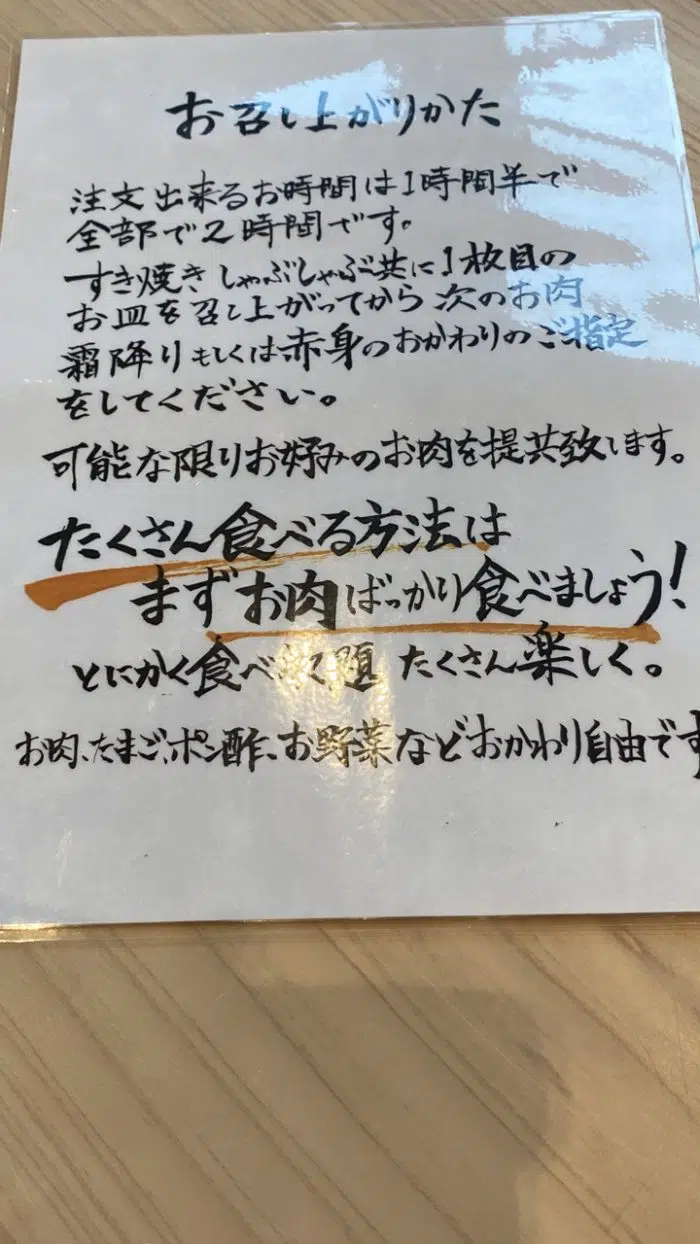 お召し上がりかた
注文出来るお時間は1時間半で
全部で2時間です。
すき焼きしゃぶしゃぶ共に1枚目の
お皿を召し上がってから次のお肉
霜降りもしくは赤身のおかわりのご指定
をしてください。
可能な限りお好みのお肉を提共致します。
たくさん食べる方法は
まずお肉ばっかり食べましょう!
とにかく食べ 題 たくさん楽しく。
お肉、たまご、ポン酢、お野菜などおかわり自由です